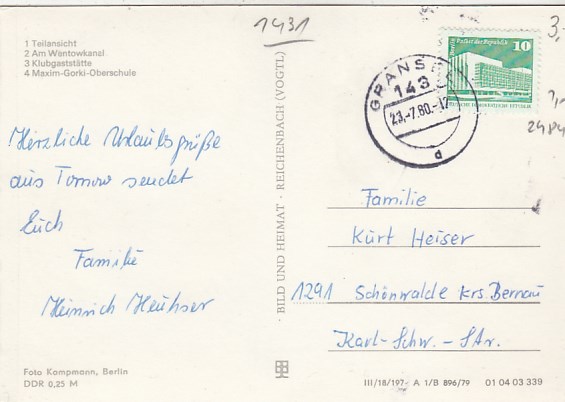 1431
3,-
1 Teilansicht
2 Am Wentowkanal
3 Klubgaststätte
4 Maxim-Gorki-Oberschule
Palast der Republik 10
GRANSEE
143
23.-7.80.-17
d
2484
Herzliche Urlaubsgrüße
aus Tornow sendet
Euch
Familie
Heinrich Heuhser
BILD UND HEIMAT · REICHENBACH (VOGTL)
Familie
Kurt Heiser
1291 Schönwalde Krs. Bernau
Karl-Schw.-Str.
Foto Kampmann, Berlin
DDR 0,25 M
III/18/197- A 1/B 896/79 01 04 03 339